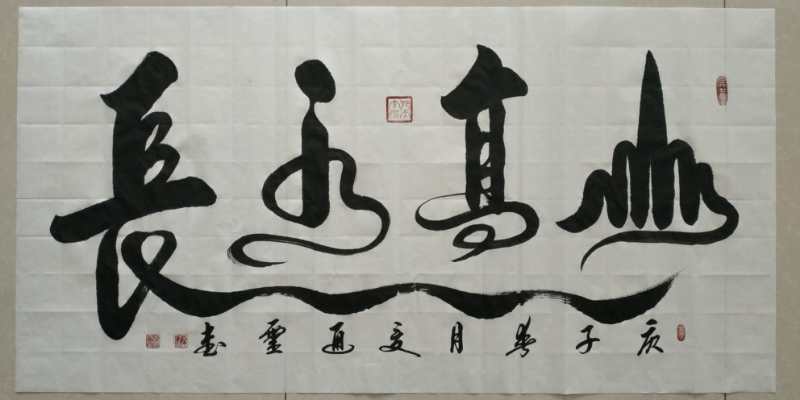 山高水長
庚子春月文通靈書